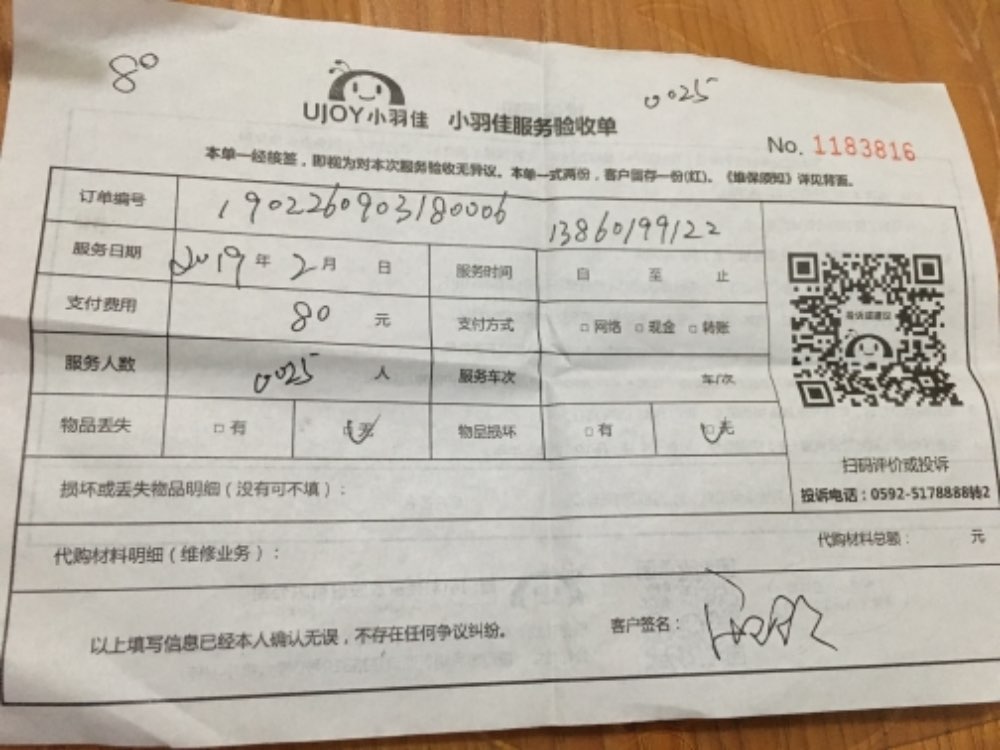 80
0025
UJOY小羽佳 小羽佳服务验收单
No. 1183816
本单一经核签，即视为对本次服务验收无异议。本单一式两份，客户留存一份(红)。《维保须知》详见背面。
订单编号 1902260903180006 13860199122
服务日期 2019 年 2 月 日 服务时间 自 至 止
支付费用 80 元 支付方式 □ 网络 □ 现金 □ 转账
服务人数 0025 人 服务车次 车/次
物品丢失 □ 有 ☑ 无 物品损坏 □ 有 ☑ 无
投诉或建议
扫码评价或投诉
投诉电话：0592-5178888转2
损坏或丢失物品明细（没有可不填）：
代购材料明细（维修业务）： 代购材料总额： 元
以上填写信息已经本人确认无误，不存在任何争议纠纷。 客户签名：